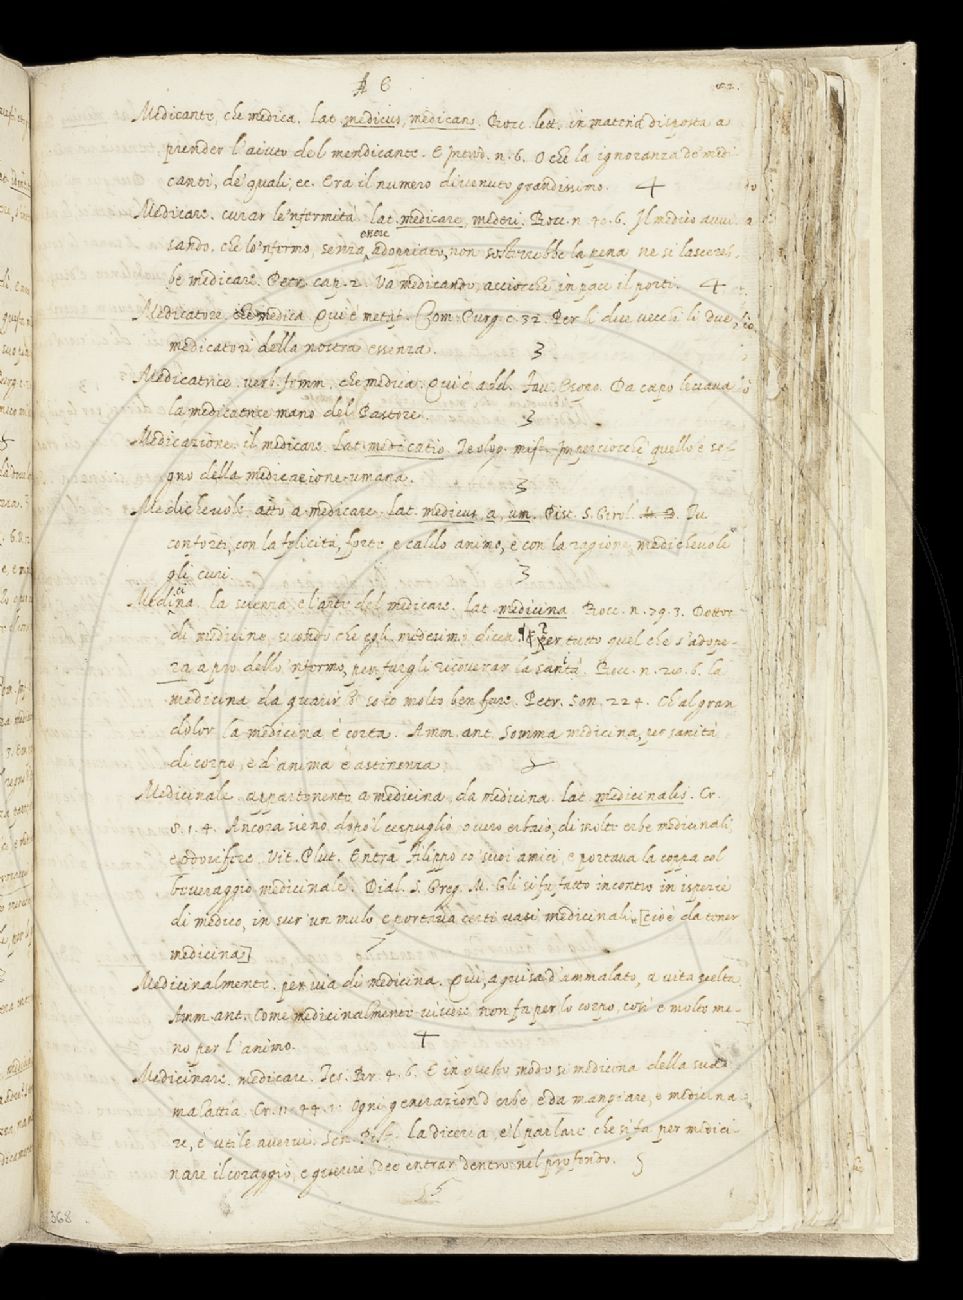 6
Medicante, che medica. Lat. medicus, medicans. Bocc. lett. in materia disposta a
prender l'aiuto del mendicante. E Introd. n. 6. O che la ignoranza de' medi-
canti, de' quali, ec. Era il numero divenuto grandissimo.
Medicare. curar le'nfermità. lat. medicare, mederi. Bocc. n. 40. 6. Il medico avvi-
sando, che lo'nfermo, senza essere adoppiato, non sosterrebbe la pena ne si lascereb-
be medicare. Petr. cap. 2. Va medicando, acciocche in pace il porti.
Medicatore, che medica. Qui è metaf. Com. Purg. c. 32. Per li due vecchi li due
medicatori della nostra essenza.
Medicatrice. verb. femm. che medica. Qui è add. Fav. Esop. Da capo levava
la medicatrice mano del Pastore.
Medicazione. il medicare. Lat. medicatio. Teolog. mist. Imperciocchè quello è se-
gno della medicazione umana.
Medichevole. atto a medicare. Lat. medicus, a, um. Pist. S. Girol. Tu
conforti, con la felicità, forte, e caldo animo, e con la ragione, medichevole
gli curi.
Medicina. la scienza, e l'arte del medicare. Lat. medicina. Bocc. n. 79. 3. Dottor
di medicine, secondo che egli medesimo dicea. per tutto quel che s'adope-
ra a pro dello'nfermo, per fargli ricoverar la sanità. Bocc. n. 26. 6. la
medicina da guarir so io molto ben fare. Petr. Son. 224. Ch'al gran
dolor la medicina è corta. Amm. ant. Somma medicina, per sanità
di corpo, e d'anima è astinenza
Medicinale. appartenente a medicina, da medicina. Lat. medicinalis. Cr.
8. 1. 4. Ancora sieno dopo'l cespuglio, overo erbaio, di molte erbe medicinali,
e odorifere. Vit. Plut. Entra Filippo co' suoi amici, e portava la coppa col
beveraggio medicinale. Dial. S. Greg. M. Gli si fu fatto incontro in ispezie
di medico, in sur un mulo e portava certi vasi medicinali [cioè da tener
medicina]
Medicinalmente. per via di medicina. Qui, a guisa d'ammalato, a vita scelta
Amm. ant. Come medicinalmente vivere non fa per lo corpo, così e molto me-
no per l'animo.
Medicinare. medicare. Tes. Br. 4. 6. E in questo modo si medicina della sua
malattia. Cr. Ogni generazion d'erbe, e da mangiare, e medicina-
re, è utile avervi. Sen. Pist. La diceria, e'l parlare che si fa per medici-
nare il coraggio, e guerire, dee entrar dentro nel profondo.
368